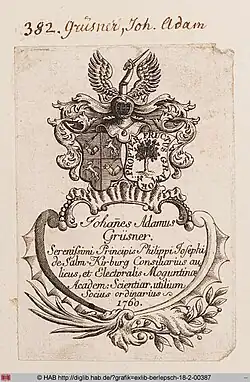 382. Grüsner, Joh. Adam
Johan̄es Adamus
Grüsner.
Serenissimi Principis Philippi Josephi
de Salm-Kirburg Consiliarius au
licus, et Electoralis Moguntinæ
Academ: Scientiar. utilium
Socius ordinarius &c
1760.
© HAB http://diglib.hab.de/?grafik=exlib-berlepsch-18-2-00387